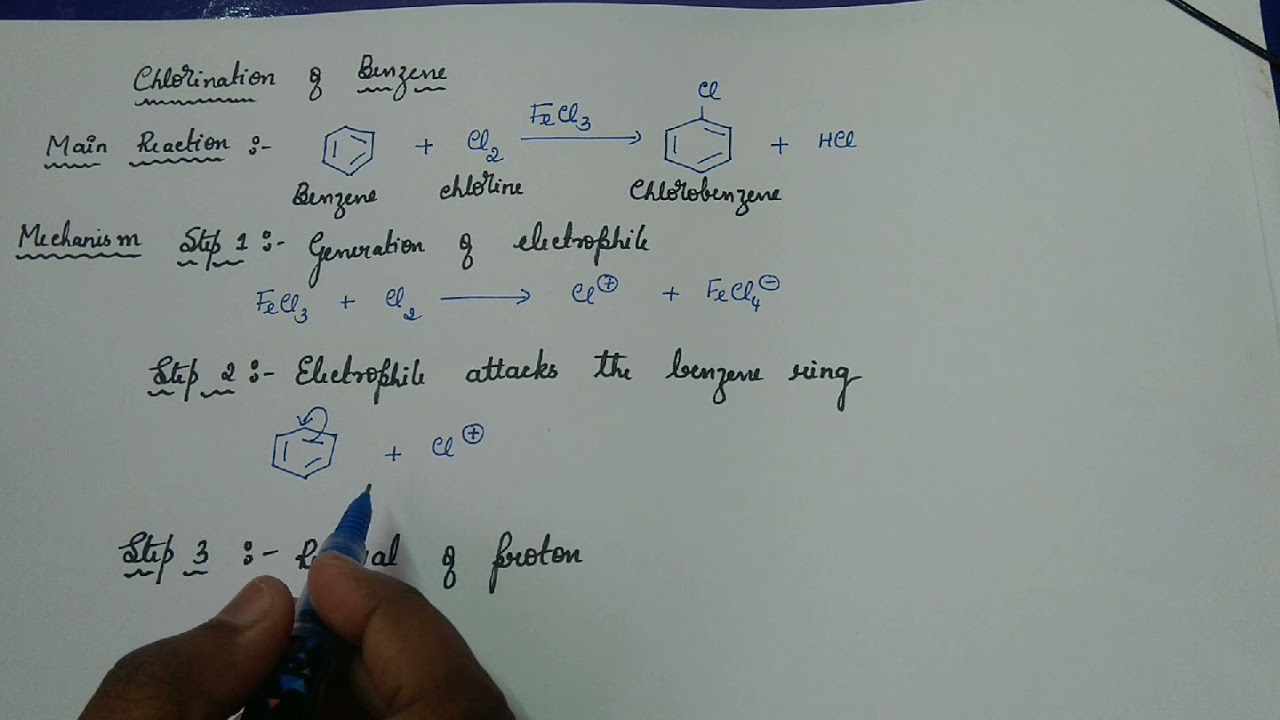 Chlorination of Benzene
Main Reaction :- + Cl2 FeCl3 Cl + HCl
Benzene chlorine Chlorobenzene
Mechanism Step 1 :- Generation of electrophile
FeCl3 + Cl2 ⟶ Cl⊕ + FeCl4⊖
Step 2 :- Electrophile attacks the benzene ring
+ Cl⊕
Step 3 :- of proton